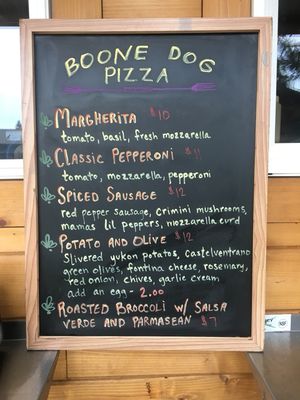 BOONE DOG
PIZZA
MARGHERITA $10
tomato, basil, fresh mozzarella
CLASSIC PEPPERONI $11
tomato, mozzarella, pepperoni
SPICED SAUSAGE $12
red pepper sausage, crimini mushrooms,
mamas lil peppers, mozzarella curd
POTATO AND OLIVE $12
Slivered yukon potatos, Castelventrano
green olives, fontina cheese, rosemary,
red onion, chives, garlic cream
add an egg - 2.00
ROASTED BROCCOLI W/ SALSA
VERDE AND PARMASEAN $7